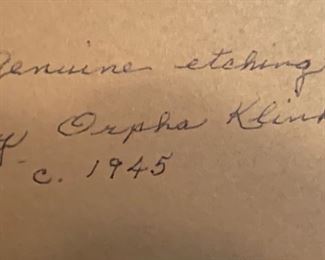 Genuine etching
by Orpha Klin
c. 1945